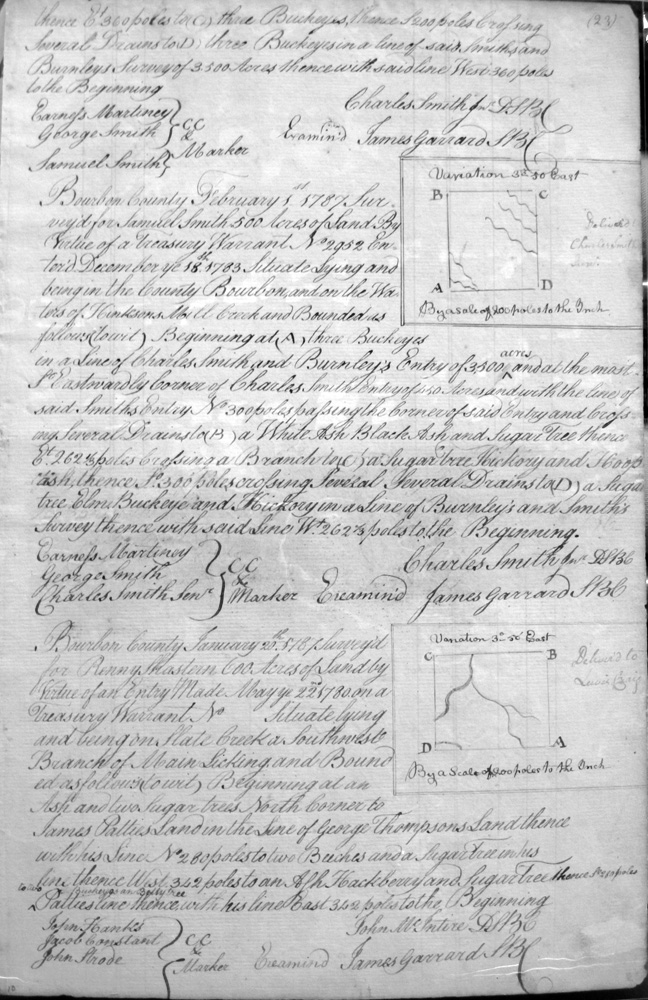 (23)
thence Et. 360 poles to (C) three Buckeyes, thence So. 200 poles Crossing
Several Drains to (D) three Buckeyes in a line of said Smiths and
Burnleys Survey of 3500 Acres thence with said line West 360 poles
to the Beginning
Earness Martiney
George Smith
Samuel Smith
CC
&
Marker
Charles Smith Jnr. DSBC
Examin'd James Garrard SBC
Bourbon County February 1st. 1787 Sur-
vey'd for Samuel Smith 500 Acres of Land By
Virtue of a Treasury Warrant No. 2952 En-
ter'd December ye 18th. 1783 Situate Lying and
being in the County Bourbon, and on the Wa-
ters of Hinksons Mill Creek and Bounded as
follows (towit) Beginning at (A) three Buckeyes
in a Line of Charles Smith and Burnley's Entry of 3,500 acres, and at the most
So. Eastwardly Corner of Charles Smith Entry of 450 Acres and with the line of
said Smiths Entry No. 300 poles passing the Corner of said Entry and Cross-
ing Several Drains to (B) a White Ash Black Ash and Sugar Tree thence
Et. 262⅔ poles Crossing a Branch to (C) a Sugar tree Hickory and Hoop
ash, thence So. 300 poles crossing Several Several Drains to (D) a Sugar
tree Elm Buckeye and Hickory in a Line of Burnley's and Smith's
Survey thence with said Line Wt. 262⅔ poles to the Beginning.
Variation 3° 50 East
B C
A D
By a scale of 200 poles to the Inch
Deliver'd
Charles Smith
Senr.
Earness Martiney
George Smith
Charles Smith Senr.
CC
&
Marker
Charles Smith Jnr. DSBC
Examin'd James Garrard SBC
Bourbon County January 20th. 178 Survey'd
for 600 Acres of Land by
Virtue of an Entry Made May ye 22 1780 on a
Treasury Warrant No Situate lying
and being on Slate Creek a Southwest
Branch of Main Licking and Bound
ed as follows (to wit) Beginning at an
Ash and two Sugar trees North Corner to
James Patties Land in the Line of George Thompsons Land thence
with his Line No. 280 poles to two Beeches and a Sugar tree in his
line thence West 342 poles to an Ash Hackberry and Sugar Tree thence So. 280 poles
to two Buckeyes an
Patties line thence with his line East 342 poles to the Beginning
Variation 3° 50' East
C B
D A
By a Scale of 200 poles to the Inch
Deliver'd to
Lewis Craig
John Hanks
Jacob Constant
John Strode
CC
&
Marker
John McIntire DSBC
Examined James Garrard SBC
10